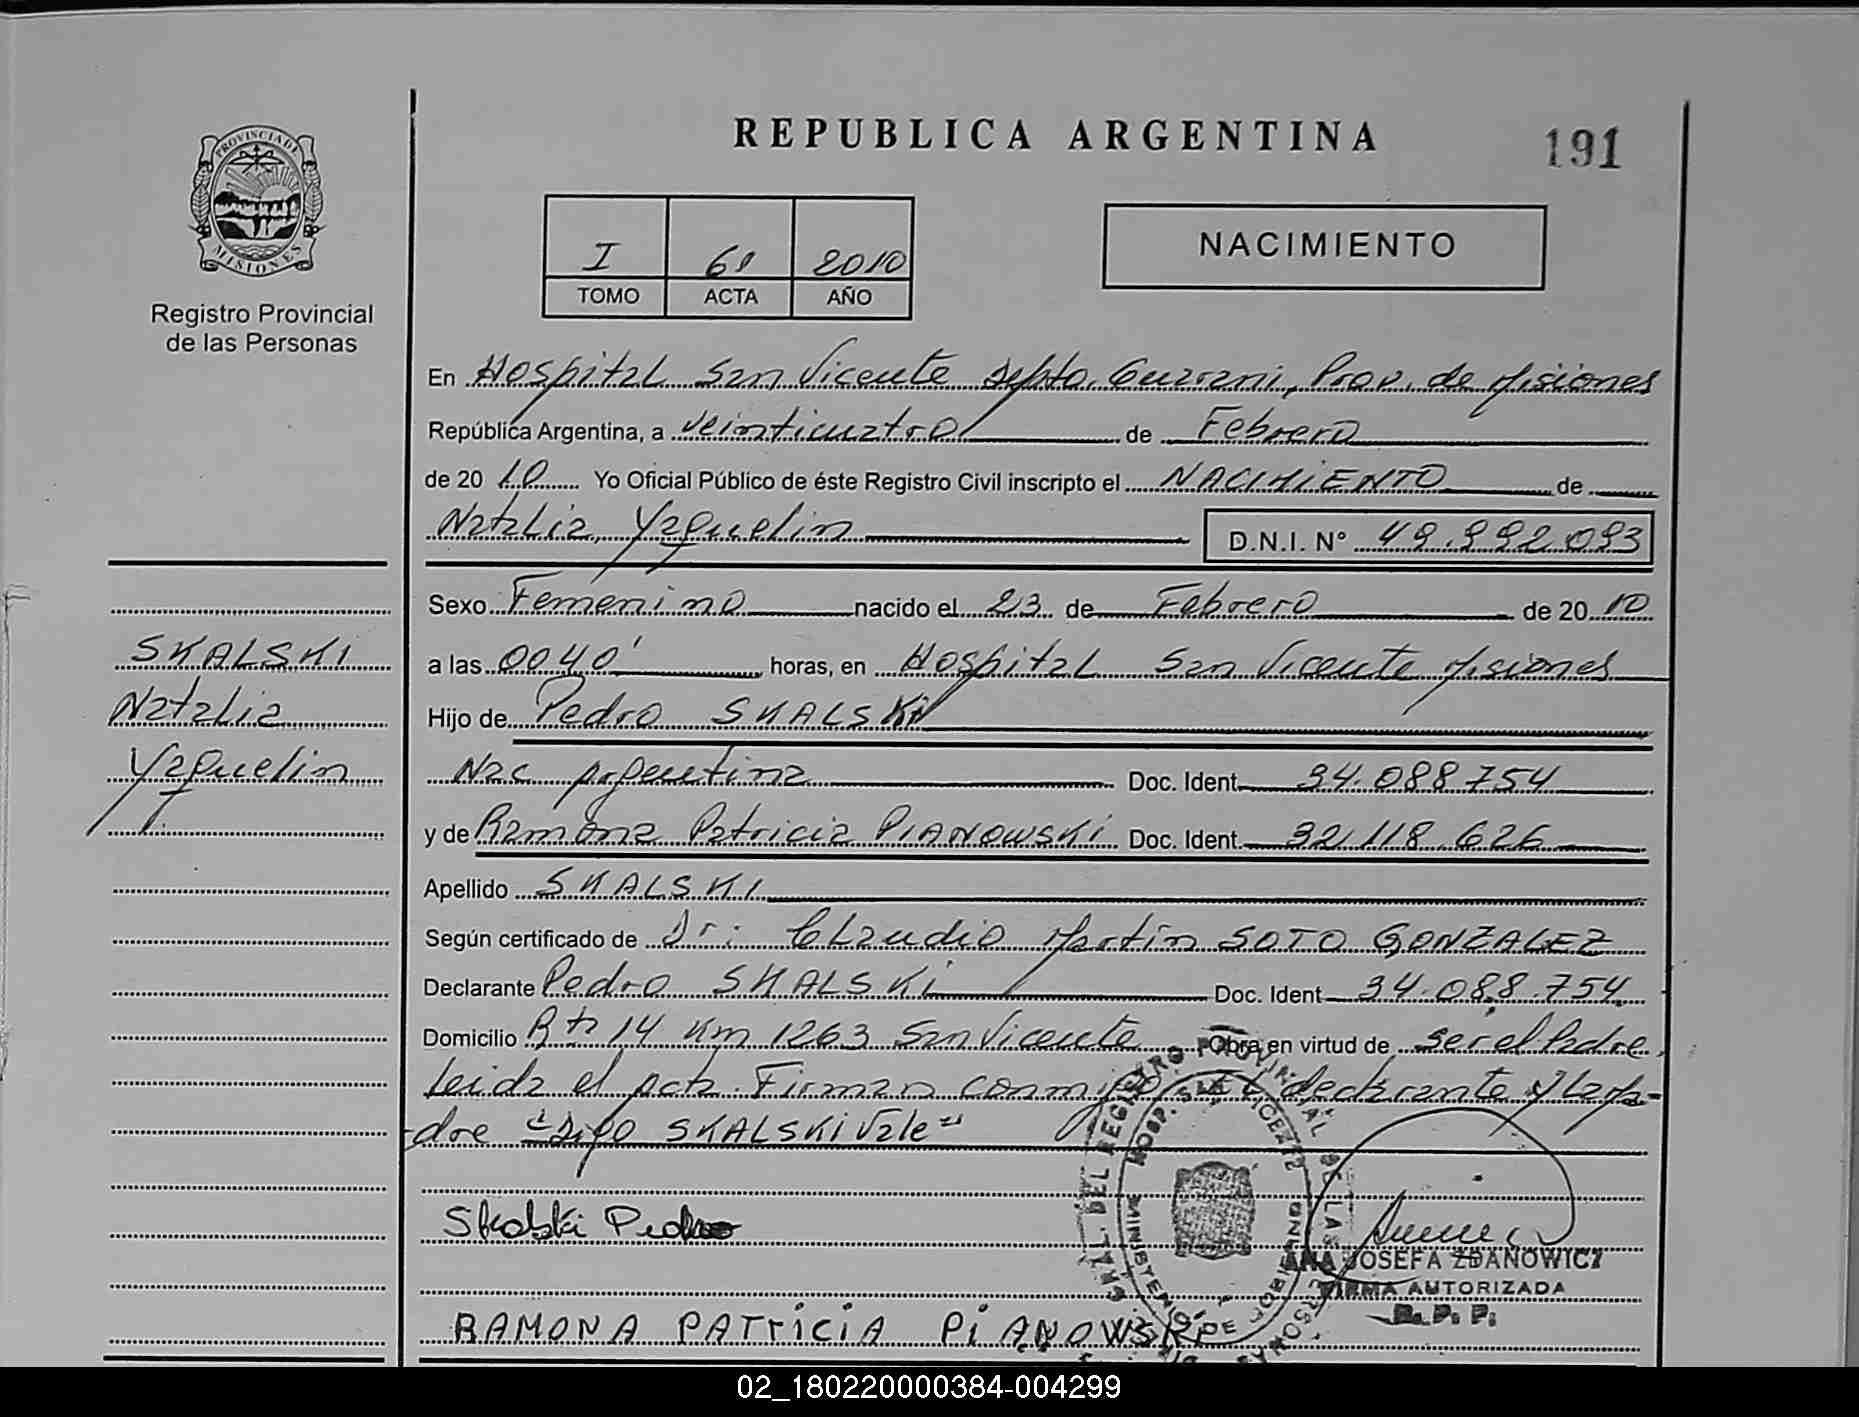 REPUBLICA ARGENTINA
191
PROVINCIA DE
MISIONES
Registro Provincial
de las Personas
I 61 2010
TOMO ACTA AÑO
NACIMIENTO
En Hospital San Vicente Dpto. Guarani, Prov. de Misiones
República Argentina, a veinticuatro de Febrero
de 20 10 Yo Oficial Público de éste Registro Civil inscripto el NACIMIENTO de
Natalia Yaquelin D.N.I. N° 49.992.093
Sexo Femenino nacido el 23 de Febrero de 20 10
a las 0040' horas, en Hospital San Vicente Misiones
Hijo de Pedro SKALSKi
Nac Argentina Doc. Ident. 34.088.754
y de Ramona Patricia PIANOWSKi Doc. Ident. 32.118.626
Apellido SKALSKI
Según certificado de Dr: Claudio Martin SOTO GONZALEZ
Declarante Pedro SKALSKi Doc. Ident 34.088.754
Domicilio Rta 14 Km 1263 San Vicente Obra en virtud de ser el Padre
Leida el acta Firman conmigo el declarante y la Ma-
dre "Digo SKALSKi Vale"
SKALSKI
Natalia
Yaquelin
Skalski Pedro
RAMONA PATriCiA PiANOWSKi
GRAL. DEL REGISTRO PROVINCIAL DE LAS PERSONAS
HOSP. SAN VICENTE
MINISTERIO DE GOBIERNO
ANA JOSEFA ZDANOWICZ
FIRMA AUTORIZADA
R. P. P.
02_180220000384-004299